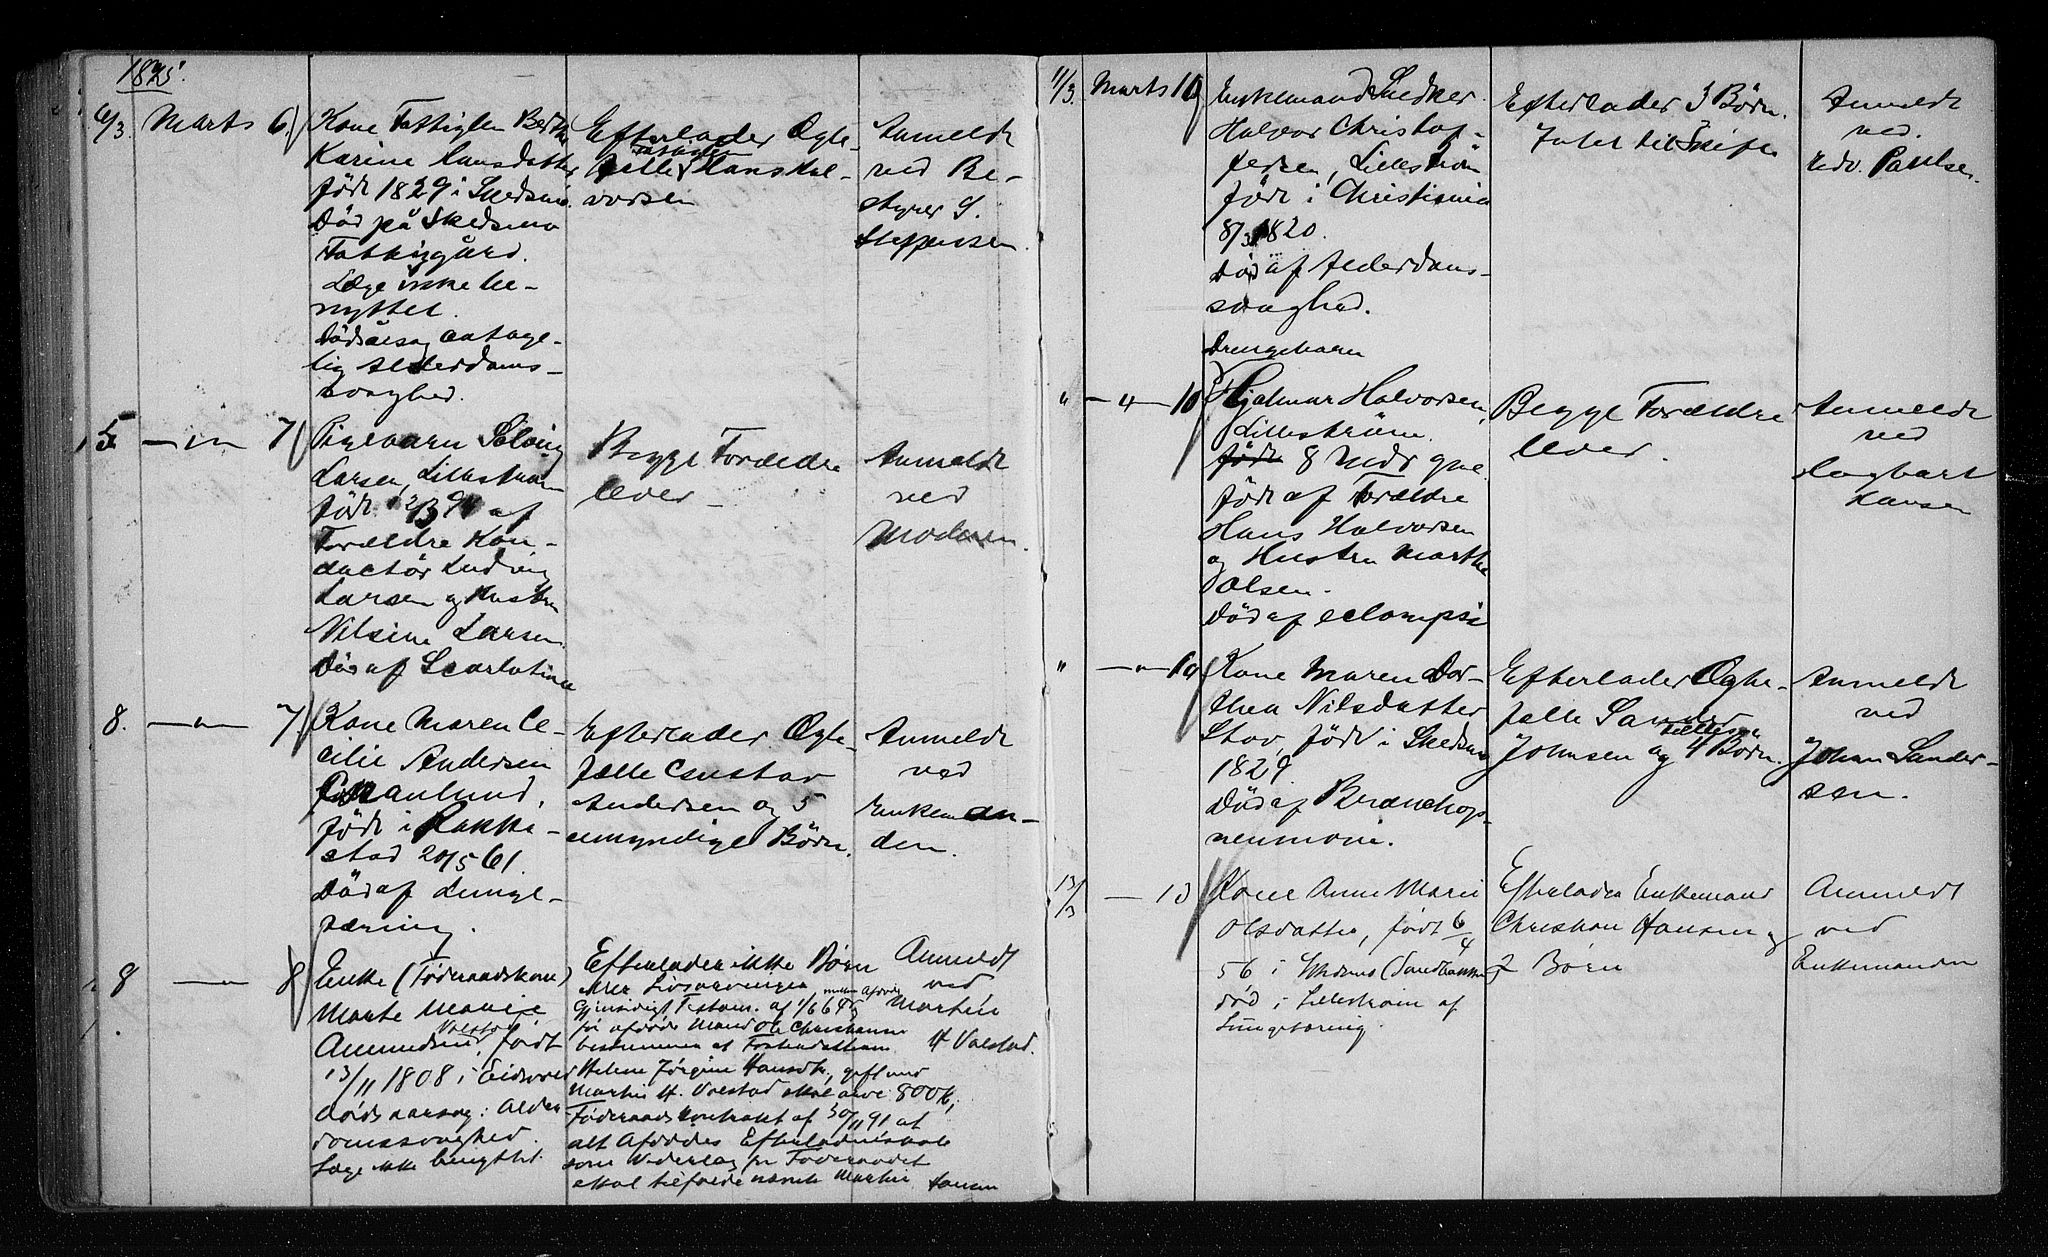 1895.
6/3. Marts 6.
Kone Fattiglem Berthe
Karine Hansdatter
född 1829 i Skedsmo.
Död på Skedsmo
Fattiggård.
Læge ikke be-
nyttet.
Dödsårsag antage-
lig Alderdoms-
svaghed.
Efterlader Ægte-
fælle Fattiglem Hans Hal-
vorsen
Anmeldt
ved Be-
styrer S.
Steffensen.
5 — " — 7
Pigebarn Solveig
Larsen, Lilleström
född 12/3 94 af
Forældre Kon-
ductör Ludvig
Larsen og Hustru
Nilsine Larsen
Död af Scarlatina
Begge Forældre
lever
Anmeldt
ved
Moderen.
8. — " — 7.
Kone Maren Ce-
cilie Andersen
Granlund,
född i Rakke-
stad 20/5 61.
Död af Lunge-
tæring.
Efterlader Ægte-
fælle Gustav
Andersen og 5
umyndige Børn.
Anmeldt
ved
Enkeman-
den.
8 — " — 8
Enke (Føderaadskone)
Marte Marie
Amundsen Valstad, født
13/11 1808 i Eidsvold
Dødsaarsag: Alder
domssvaghed.
Læge ikke benyttet.
Efterlader ikke Børn
eller Livsarvinger,
Gjensidigt Testam. af 1/6 64 mellem Afdøde
før afdøde Mand Ole Christiansen
bestemmer at Fosterdatteren
Helene Jørgine Hansdtr., gift med
Martin H. Valstad skal arve 800 Kr;
Føderaadskontrakt af 30/11 91 at
alt Afdødes Efterladenskab
som Vederlag for Føderaadet
skal tilfalde nævnte Martin Hansen
Anmeldt
ved
Martin
H Valstad.
11/3. Marts 10
Enkemand Snedker
Halvor Christof-
fersen, Lilleström
född i Christiania
8/3 1820.
Död af Alderdoms-
svaghed.
Efterlader 3 Börn.
Intet til Skifte
Anmeldt
ved.
Edv. Paulsen.
" — " — 10
Drengebarn
Hjalmar Halvorsen,
Lilleström.
född 8 Mdr gml.
född af Forældre
Hans Halvorsen
og Hustru Marthe
Olsen.
Död af eclampsi
Begge Forældre
lever.
Anmeldt
ved
Hansen
" — " — 10
Kone Maren Dor-
thea Nilsdatter
Stav, född i Skedsmo
1829.
Död af Bronchop-
neumoni.
Efterlader Ægte-
fælle Sander
Johnsen og 4 Børn.
Anmeldt
ved
Johan Sander-
sen.
13/3 — 13
Kone Anne Marie
Olsdatter, født 6/4
56 i Skedsmo (Sandbakken)
død i Lillestrøm af
Lungetæring.
Efterlader Enkemand
Christian Hansen og
7 Børn
Anmeldt
ved
Enkemanden